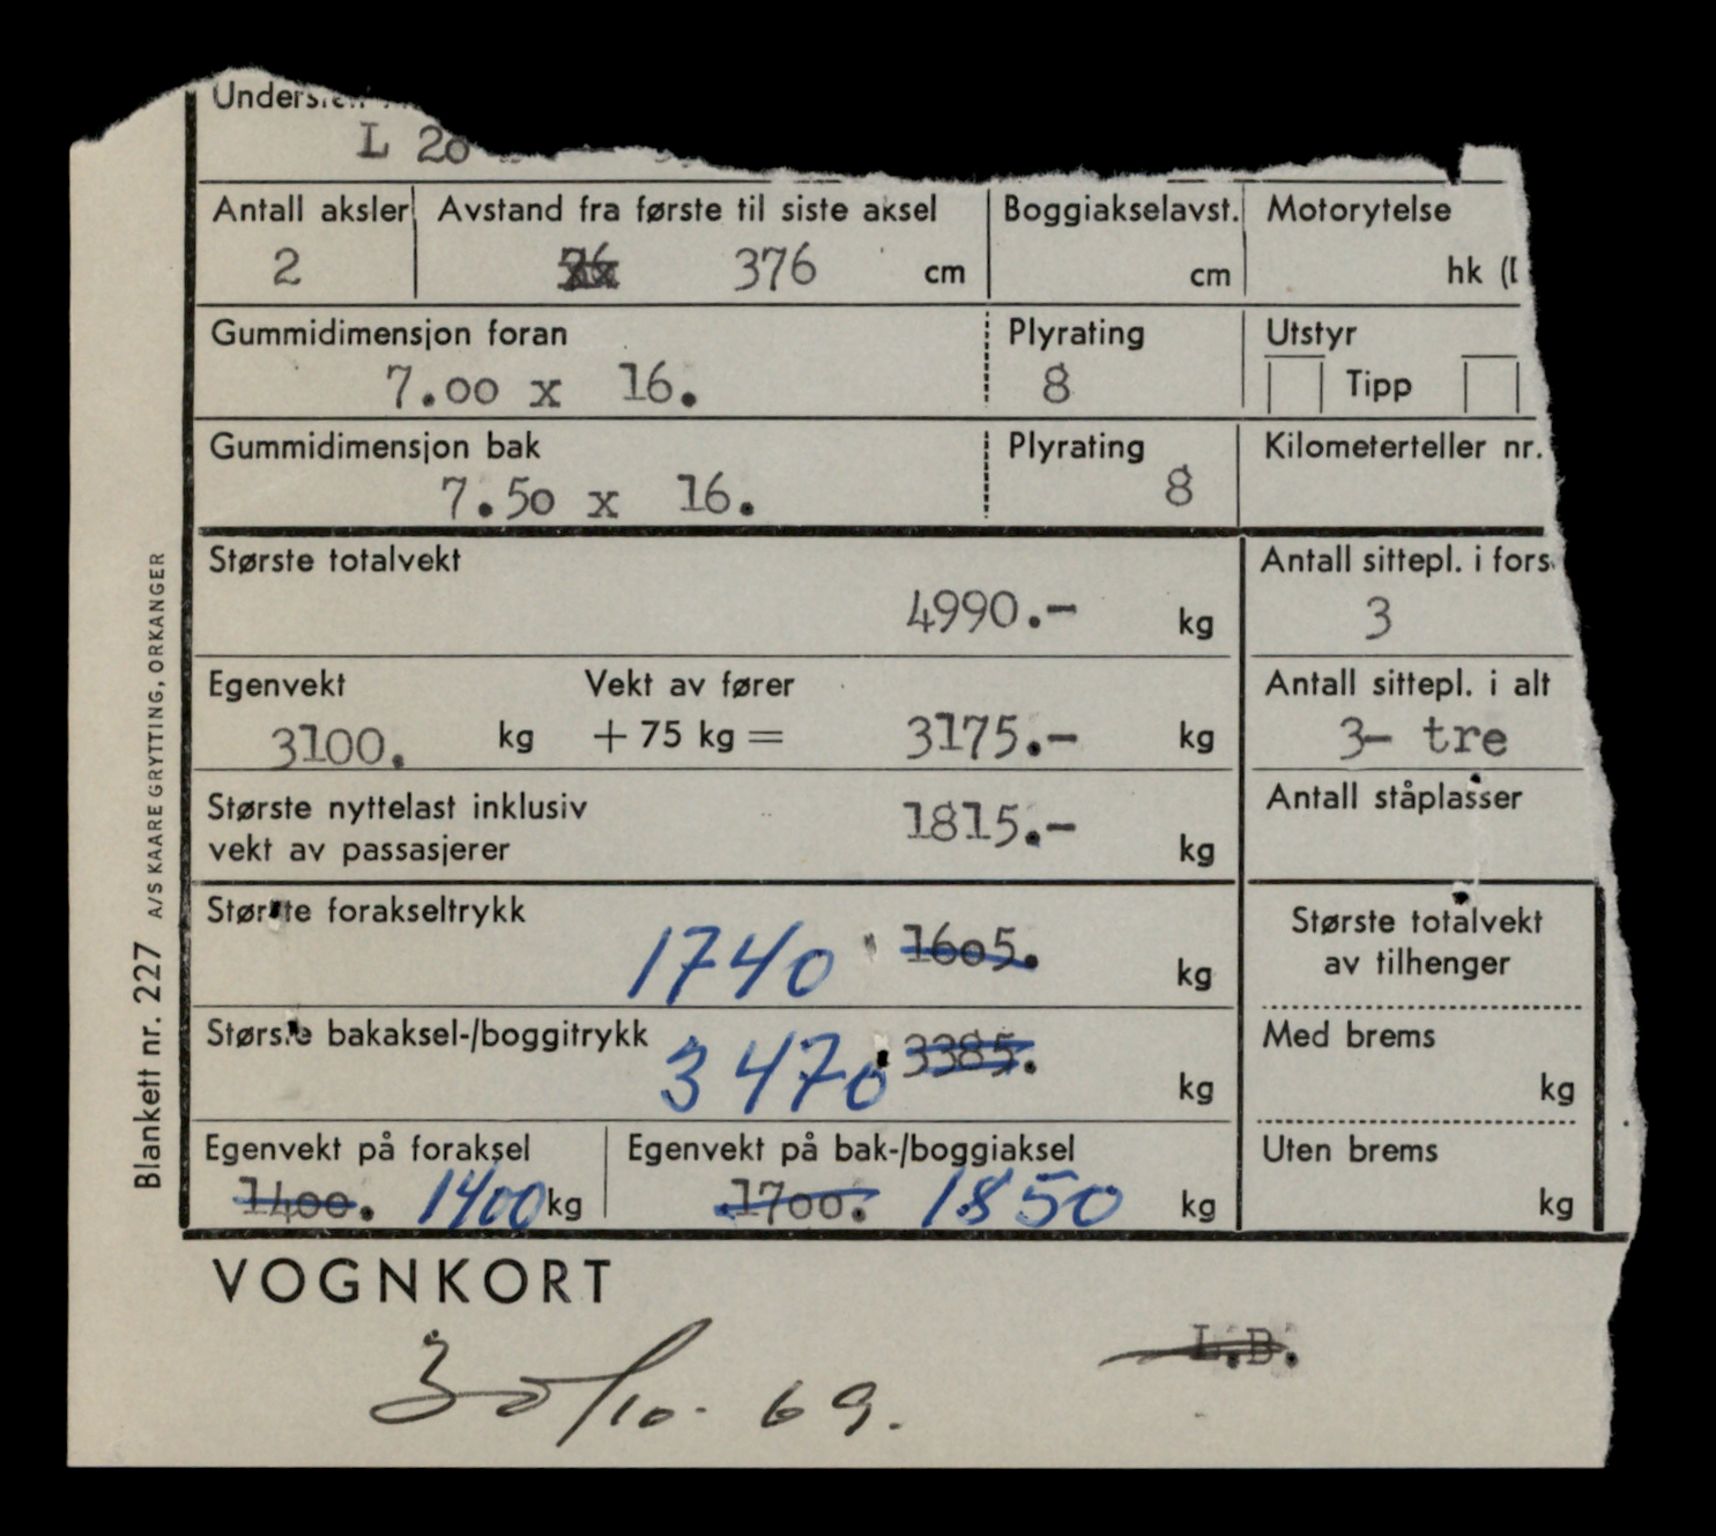 L 20
Antall aksler Avstand fra første til siste aksel Boggiakselavst. Motorytelse
2 376 cm cm hk
Gummidimensjon foran Plyrating Utstyr
7.00 x 16. 8 Tipp
Gummidimensjon bak Plyrating Kilometerteller nr.
7.50 x 16. 8
Største totalvekt Antall sittepl. i fors
4990.- kg 3
Egenvekt Vekt av fører Antall sittepl. i alt
3100. kg + 75 kg = 3175.- kg 3- tre
Største nyttelast inklusiv 1815.- Antall ståplasser
vekt av passasjerer kg
Største forakseltrykk Største totalvekt
1740 1605. kg av tilhenger
Største bakaksel-/boggitrykk Med brems
3470 3385. kg kg
Egenvekt på foraksel Egenvekt på bak-/boggiaksel Uten brems
1400. 1400 kg 1700. 1850 kg kg
VOGNKORT
30/10. 69.
L.B.
Blankett nr. 227 A/S KAARE GRYTTING, ORKANGER